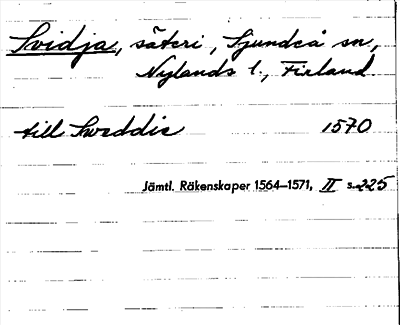 Svidja, säteri, Sjundeå sn,
Nylands l., Finland
till Sweddie 1570
Jämtl. Räkenskaper 1564—1571, II s. 225